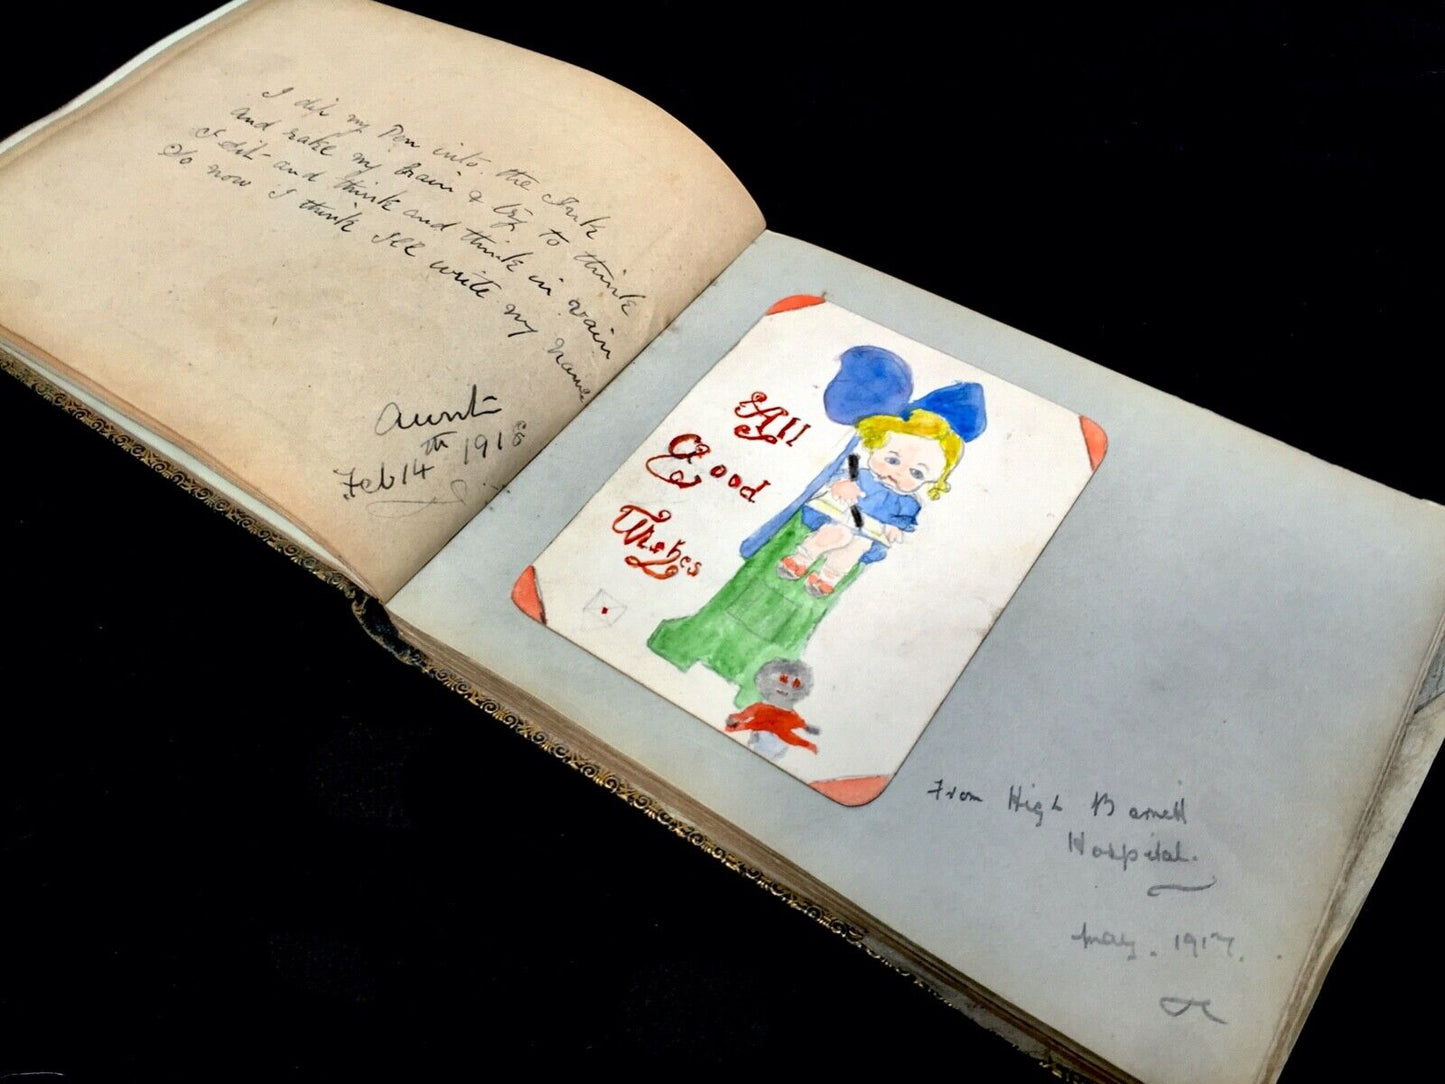 I dip my Pen into the Ink
and rake my brain & try to think
I sit and think and think in vain
So now I think Ill write my name
Auntie
Feb 14th 1918
All
Good
Wishes
From High Barnett
Hospital.
May. 1917.